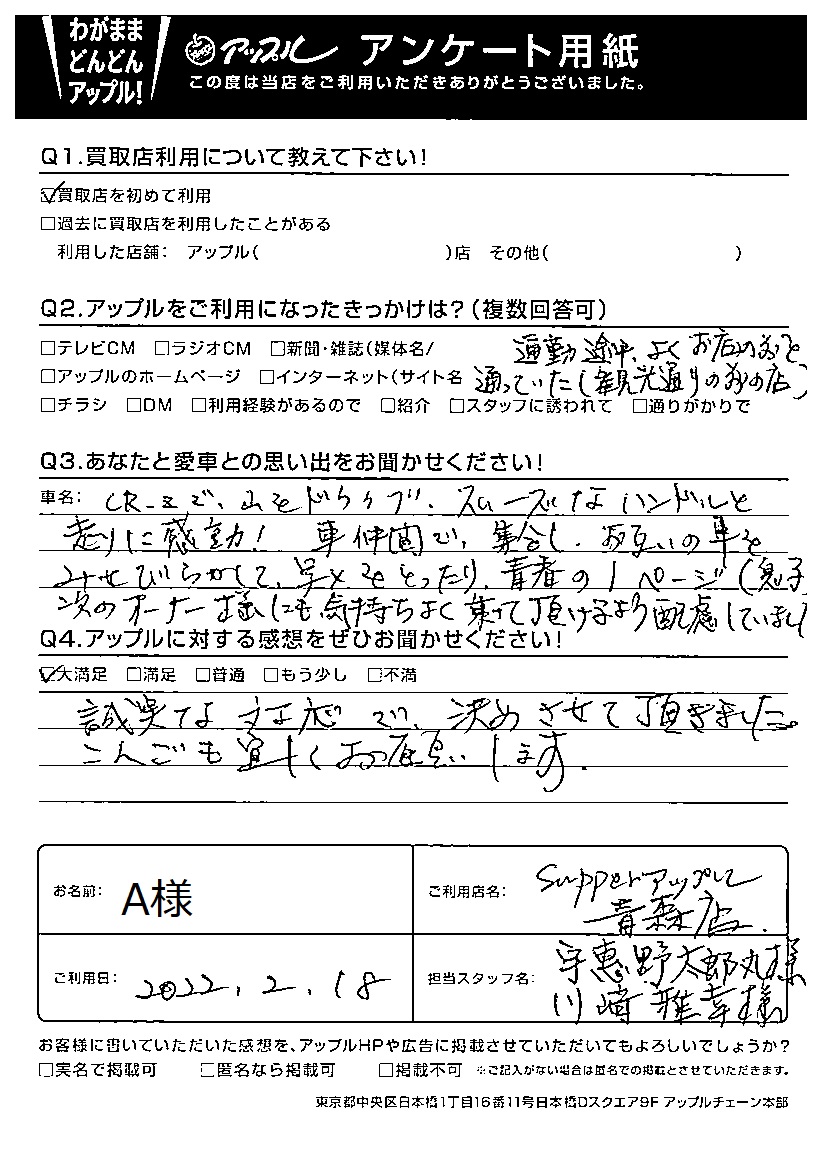 わがまま
どんどん
アップル!
アップル アンケート用紙
この度は当店をご利用いただきありがとうございました。
Q1.買取店利用について教えて下さい!
☑買取店を初めて利用
□過去に買取店を利用したことがある
利用した店舗: アップル( )店 その他( )
Q2.アップルをご利用になったきっかけは?(複数回答可)
□テレビCM □ラジオCM □新聞・雑誌(媒体名/ 通勤途中、よくお店の前を
□アップルのホームページ □インターネット(サイト名 通っていた(観光通りの前の店)
□チラシ □DM □利用経験があるので □紹介 □スタッフに誘われて □通りがかりで
Q3.あなたと愛車との思い出をお聞かせください!
車名: CR-Zで、山をドライブ、スムーズなハンドルと
走りに感動! 車仲間で、集合し、お互いの車を
みせびらかして、写メをとったり、青春の1ページ(息子
次のオーナー様にも気持ちよく乗って頂けるよう配慮していまし
Q4.アップルに対する感想をぜひお聞かせください!
☑大満足 □満足 □普通 □もう少し □不満
誠実な対応で、決めさせて頂きました。
こんごも宜しくお願いします.
お名前: A様
ご利用店名: Supperアップル
青森店.
ご利用日: 2022.2.18
担当スタッフ名: 宇恵野太郎丸様
川崎雅幸様
お客様に書いていただいた感想を、アップルHPや広告に掲載させていただいてもよろしいでしょうか?
□実名で掲載可 □匿名なら掲載可 □掲載不可 ※ご記入がない場合は匿名での掲載とさせていただきます。
東京都中央区日本橋1丁目16番11号日本橋Dスクエア9F アップルチェーン本部